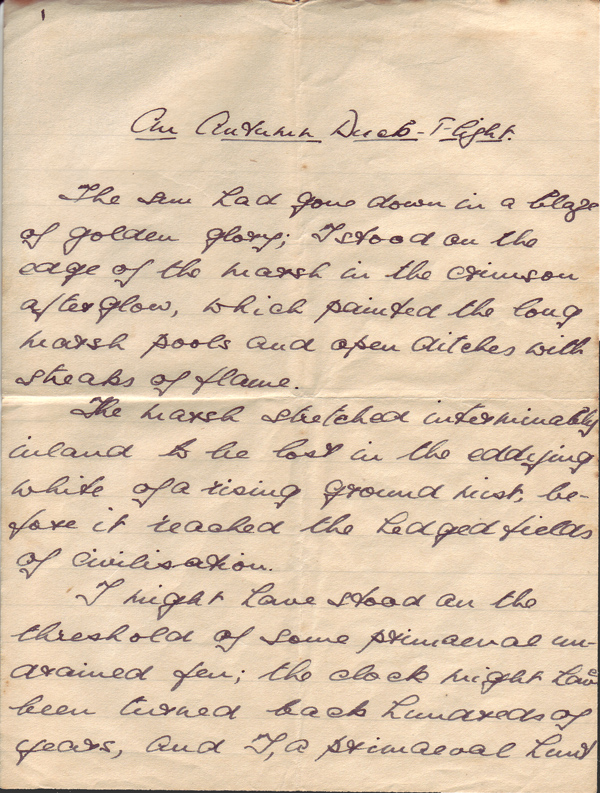 1
An Autumn Duck-Flight.
The sun had gone down in a blaze
of golden glory; I stood on the
edge of the marsh in the crimson
afterglow, which painted the long
marsh pools and open ditches with
streaks of flame.
The marsh stretched interminably
inland to be lost in the eddying
white of a rising ground mist, be-
fore it reached the hedged fields
of civilisation.
I might have stood on the
threshold of some primaeval un-
drained fen; the clock might have
been turned back hundreds of
years, and I, a primaeval hunt